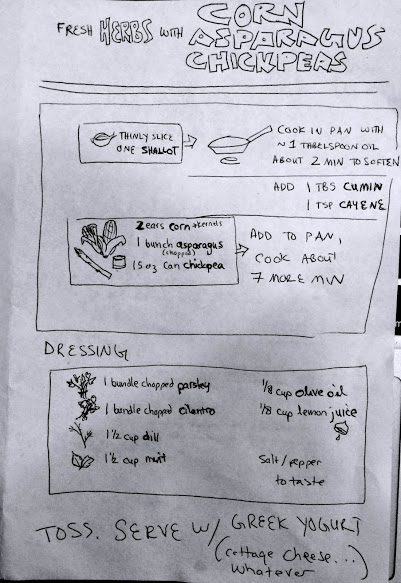 FRESH HERBS WITH CORN
ASPARAGUS
CHICKPERS
THINLY SLICE
ONE SHALLOT
COOK IN PAN WITH
~1 TABELSPOON OIL
ABOUT 2 MIN TO SOFTEN
ADD 1 TBS CUMIN
1 TSP CAYENE
2 ears corn → kernels
1 bunch asparagus
(chopped)
15 oz can chickpea
ADD TO PAN,
COOK ABOUT
7 MORE MIN
DRESSING
1 bundle chopped parsley
1 bundle chopped cilantro
1 1/2 cup dill
1 1/2 cup mint
1/8 cup olive oil
1/8 cup lemon juice
Salt/pepper
to taste
TOSS. SERVE W/ GREEK YOGURT
(cottage cheese...
whatever)